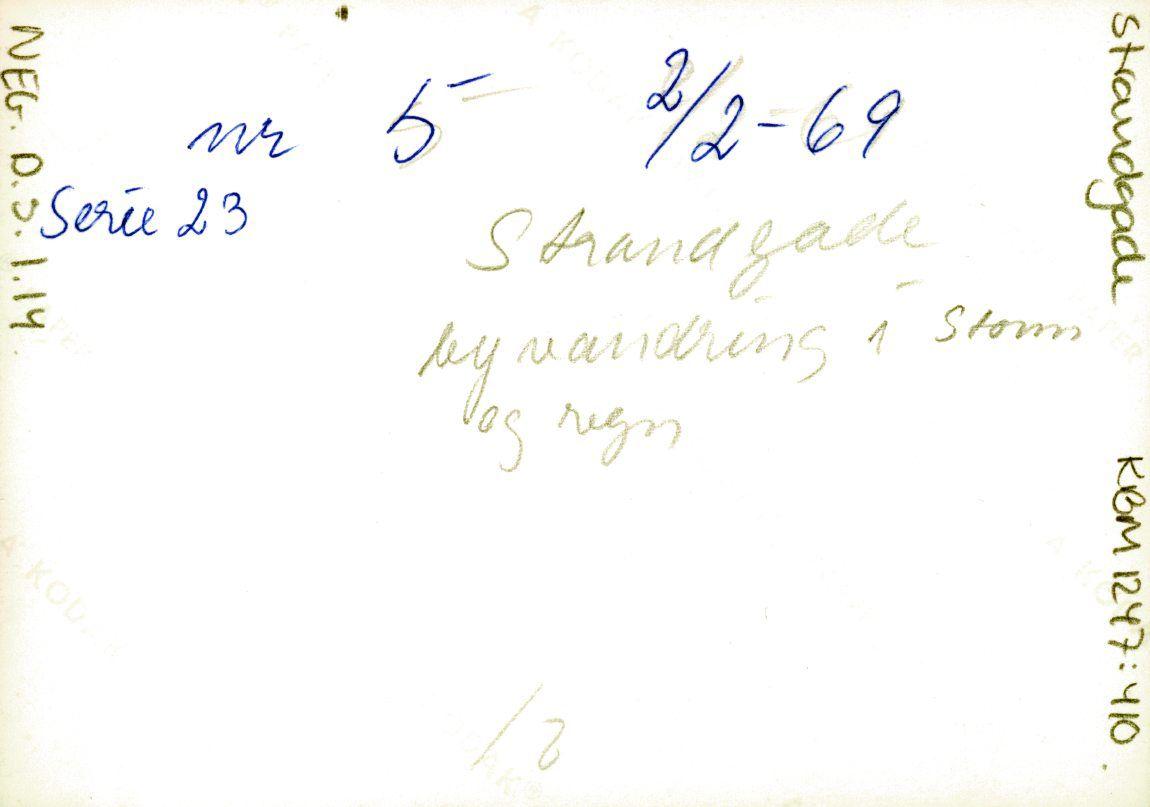 nr 5 2/2-69
Serie 23
Strandgade
byvandring i Storm
og regn
Strandgade
KBM 1247:410